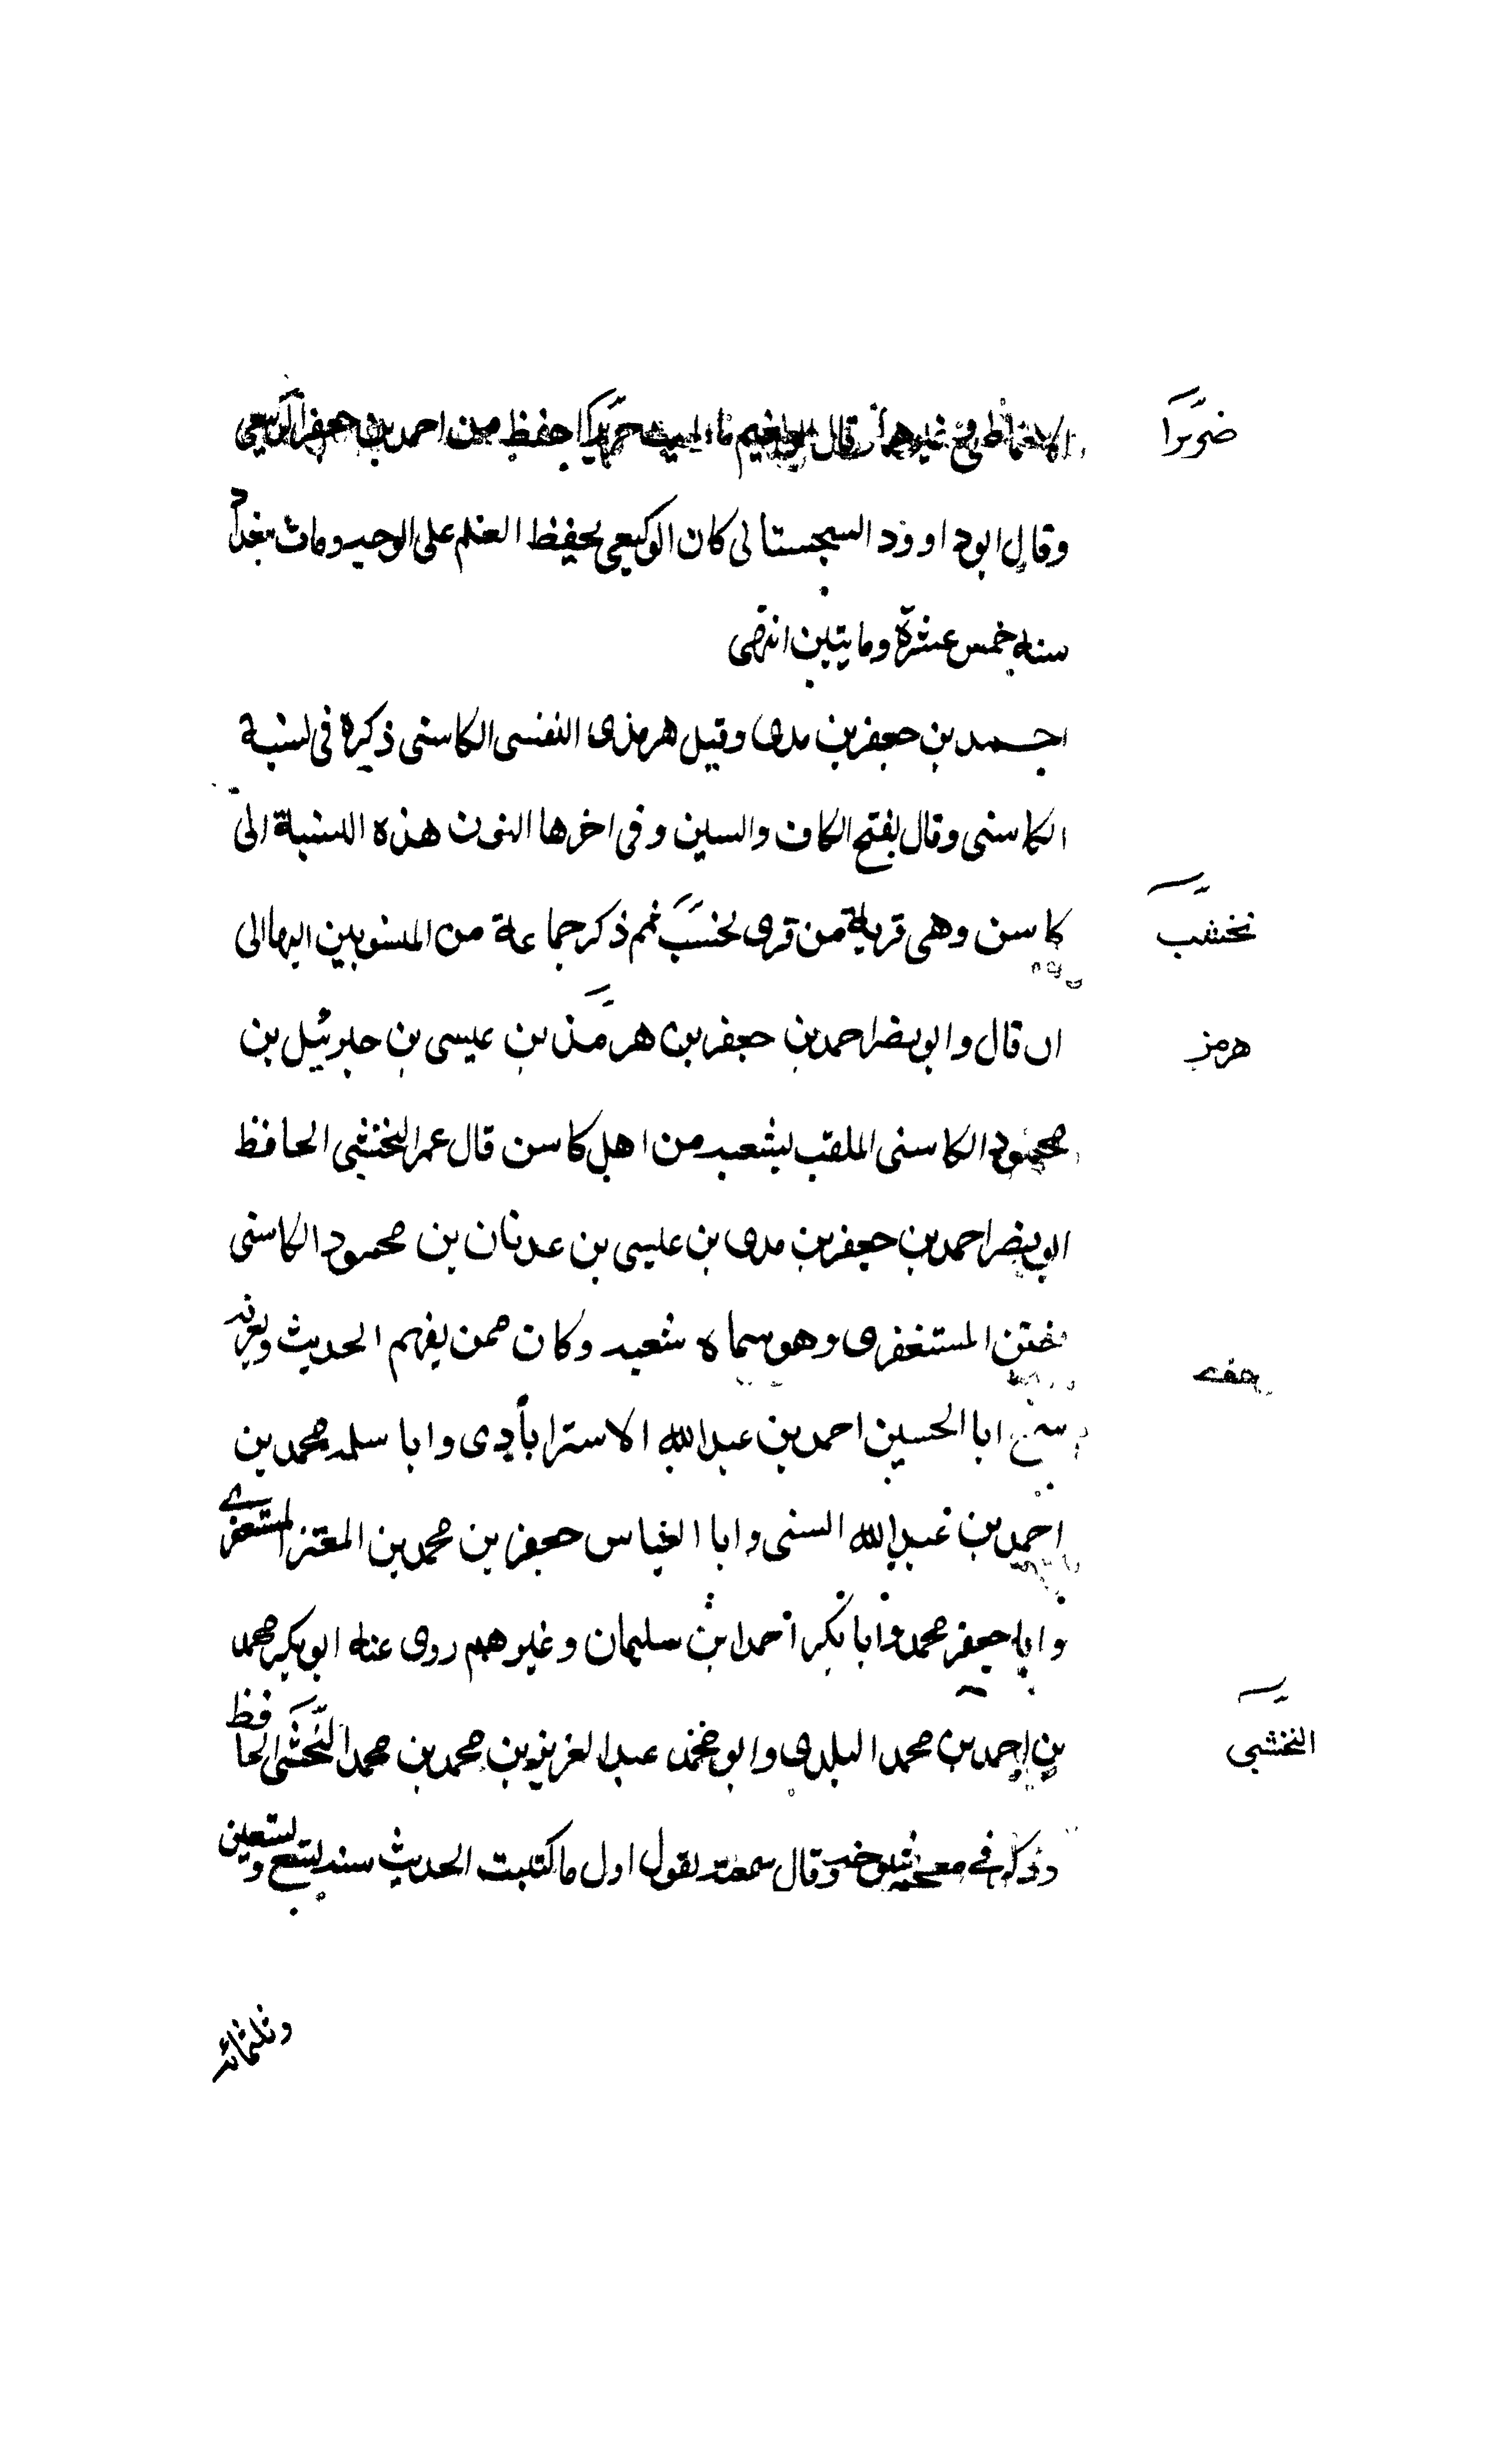 الانماطى وغيرهما قال ابو نعيم ما رايت ضريرا احفظ من احمد بن جعفر الوكيعى
ضريرا
وقال ابو داوود السجستانى كان الوكيعى يحفظ العلم على الوجه ومات ببغداد
سنه خمس عشرة ومايتين انتهى
احمد بن جعفر بن مدى وقيل هرمذى النفسى الكاسنى ذكره فى نسبة
الكاسنى وقال بفتح الكاف والسين وفى اخرها النون هذه النسبة الى
كاسن وهى قرية من قرى نخشب ثم ذكر جماعة من المنسوبين اليها الى
نخشب
ان قال وابو نصر احمد بن جعفر بن هرمذ بن عيسى بن جبرئيل بن
هرمز
محمود الكاسنى الملقب بشعبه من اهل كاسن قال عمر النخشبى الحافظ
ابو نصر احمد بن جعفر بن مدى بن عيسى بن عدنان بن محمود الكاسنى
ختن المستغفرى وهو سماه شعبه وكان ممن يفهم الحديث ويعرفه
سمع ابا الحسين احمد بن عبد الله الاسترابادى وابا سلمه محمد بن
احمد بن عبد الله السنى وابا العباس جعفر بن محمد بن المعتز المستغفرے
وابا جعفر محمد وابا بكر احمد ابن سليمان وغيرهم روى عنه ابو بكر محمد
بن احمد بن محمد البلدى وابو محمد عبد العزيز بن محمد بن محمد النخشبى الحافظ
النخشبى
وذكره فے معجم شيوخه وقال سمعته يقول اول ما كتبت الحديث سنه تسع وتسعين
وثلثمائه